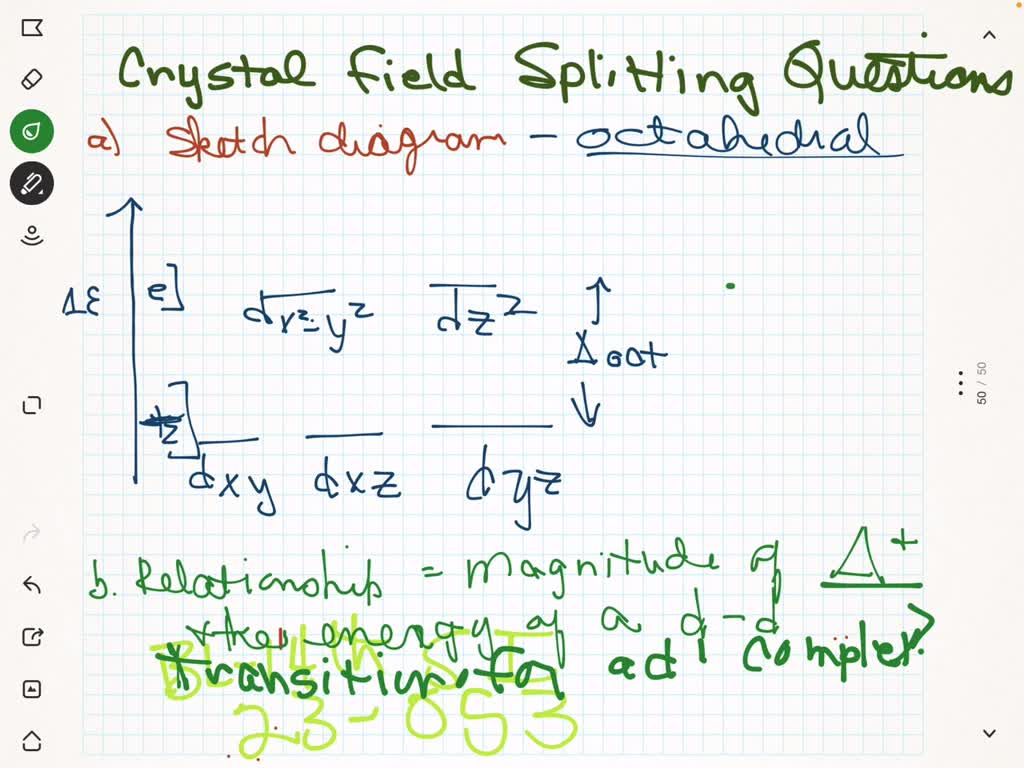 Crystal Field Splitting Questions
a) Sketch diagram - octahedral
ΔE
e]
dx²-y² dz²
Δ oct
t2]
dxy dxz dyz
50 / 50
b. Relationship = magnitude of Δ +
the energy of a d-d
transition for a d1 complex.
23-053